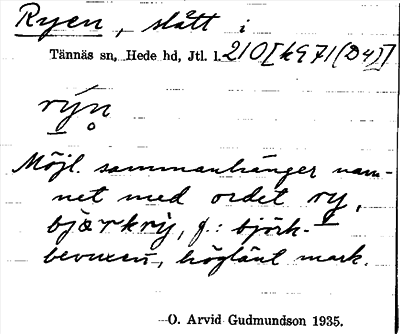 Ryen, slått i
Tännäs sn, Hede hd, Jtl. l. 210 [k971(D4)]
rýn̥
Möjl. sammanhänger nam-
net med ordet ry,
bjærkrỳ, f.: björk-
bevuxen, högländ mark.
O. Arvid Gudmundson 1935.